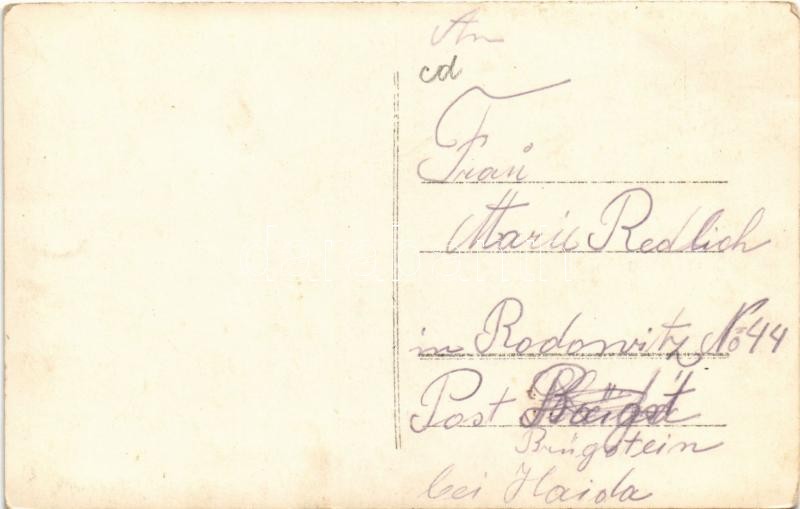 An
cd
Frau
Marie Redlich
in Rodowitz No 44
Post
Brügstein
bei Haida